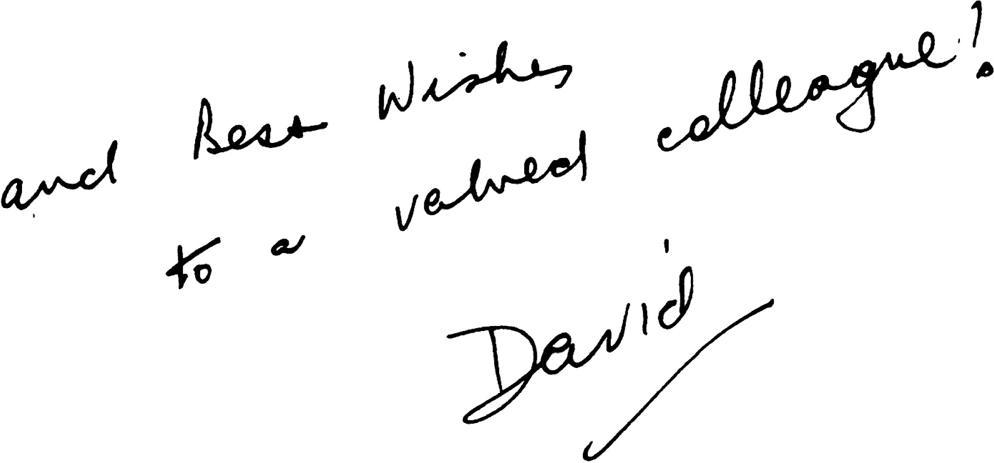 and Best Wishes
to a valued colleague!
David